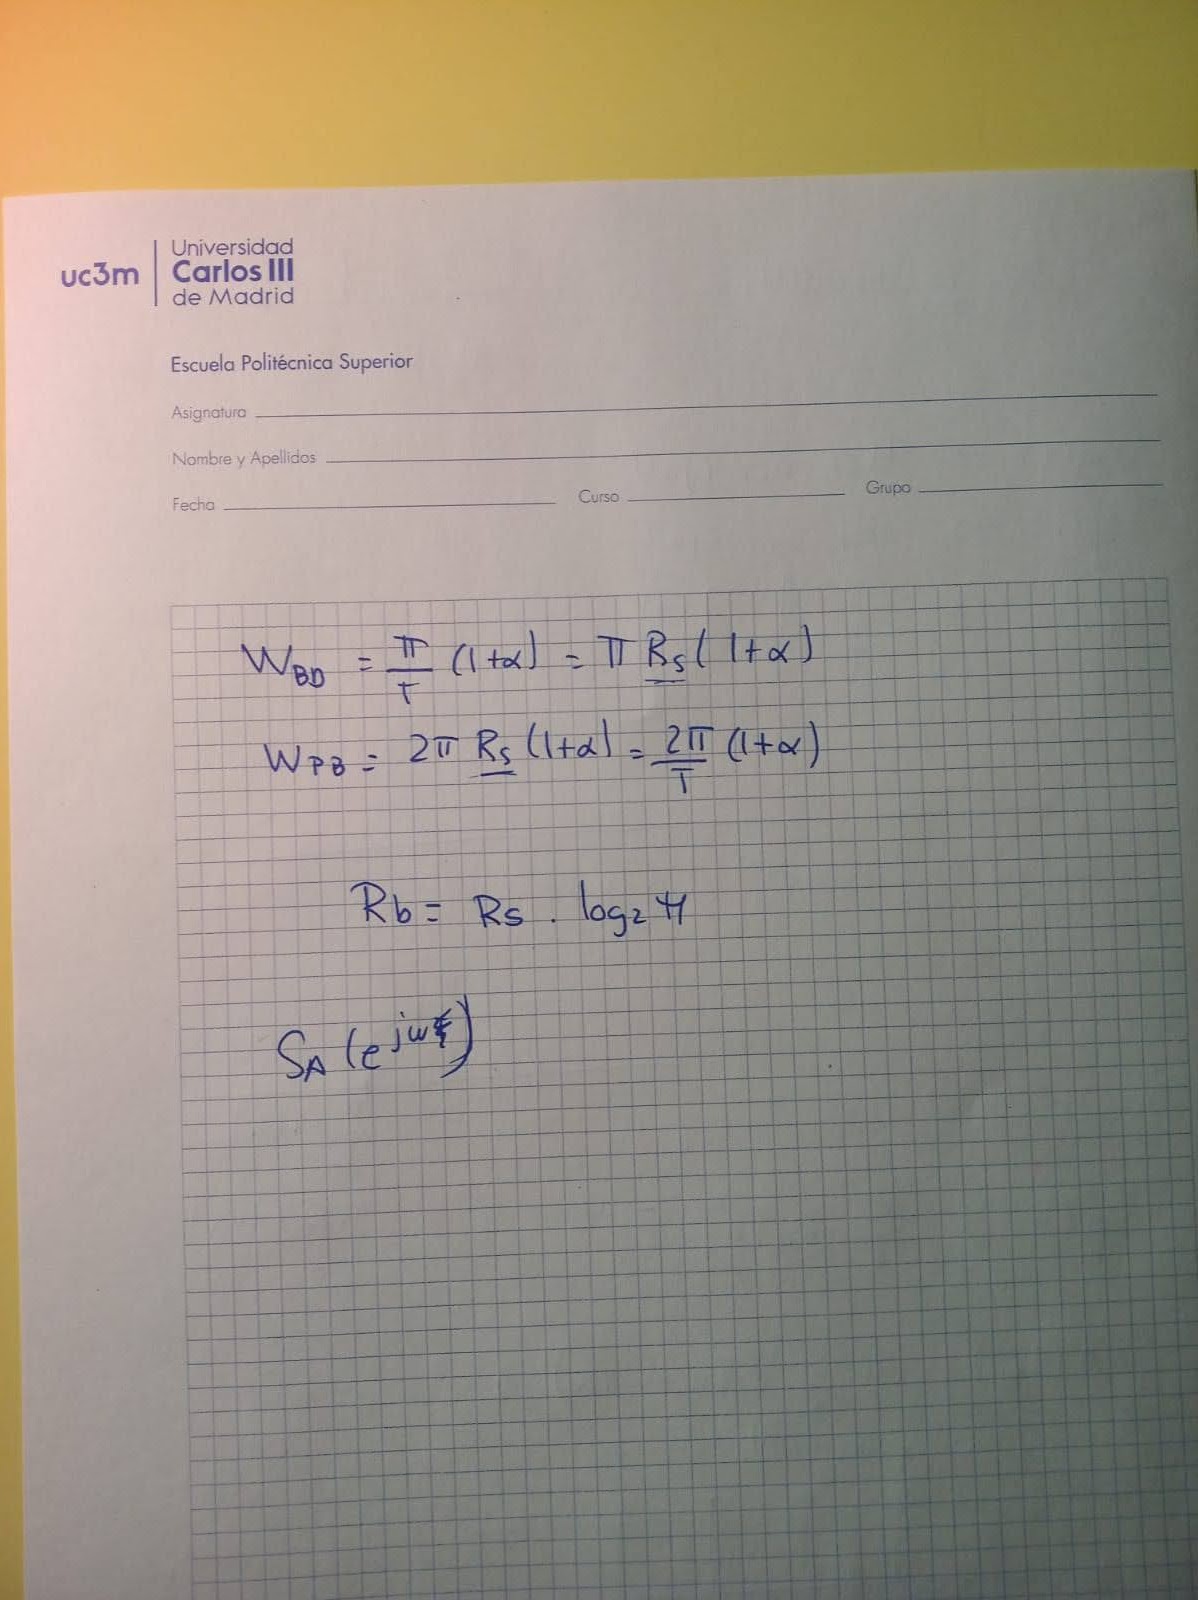 uc3m
Universidad
Carlos III
de Madrid
Escuela Politécnica Superior
Asignatura
Nombre y Apellidos
Fecha Curso Grupo
W_BD = π/T (1+α) = π Rs (1+α)
W_PB = 2π Rs (1+α) = 2π/T (1+α)
Rb = Rs . log₂ M
S_A (e^jω)